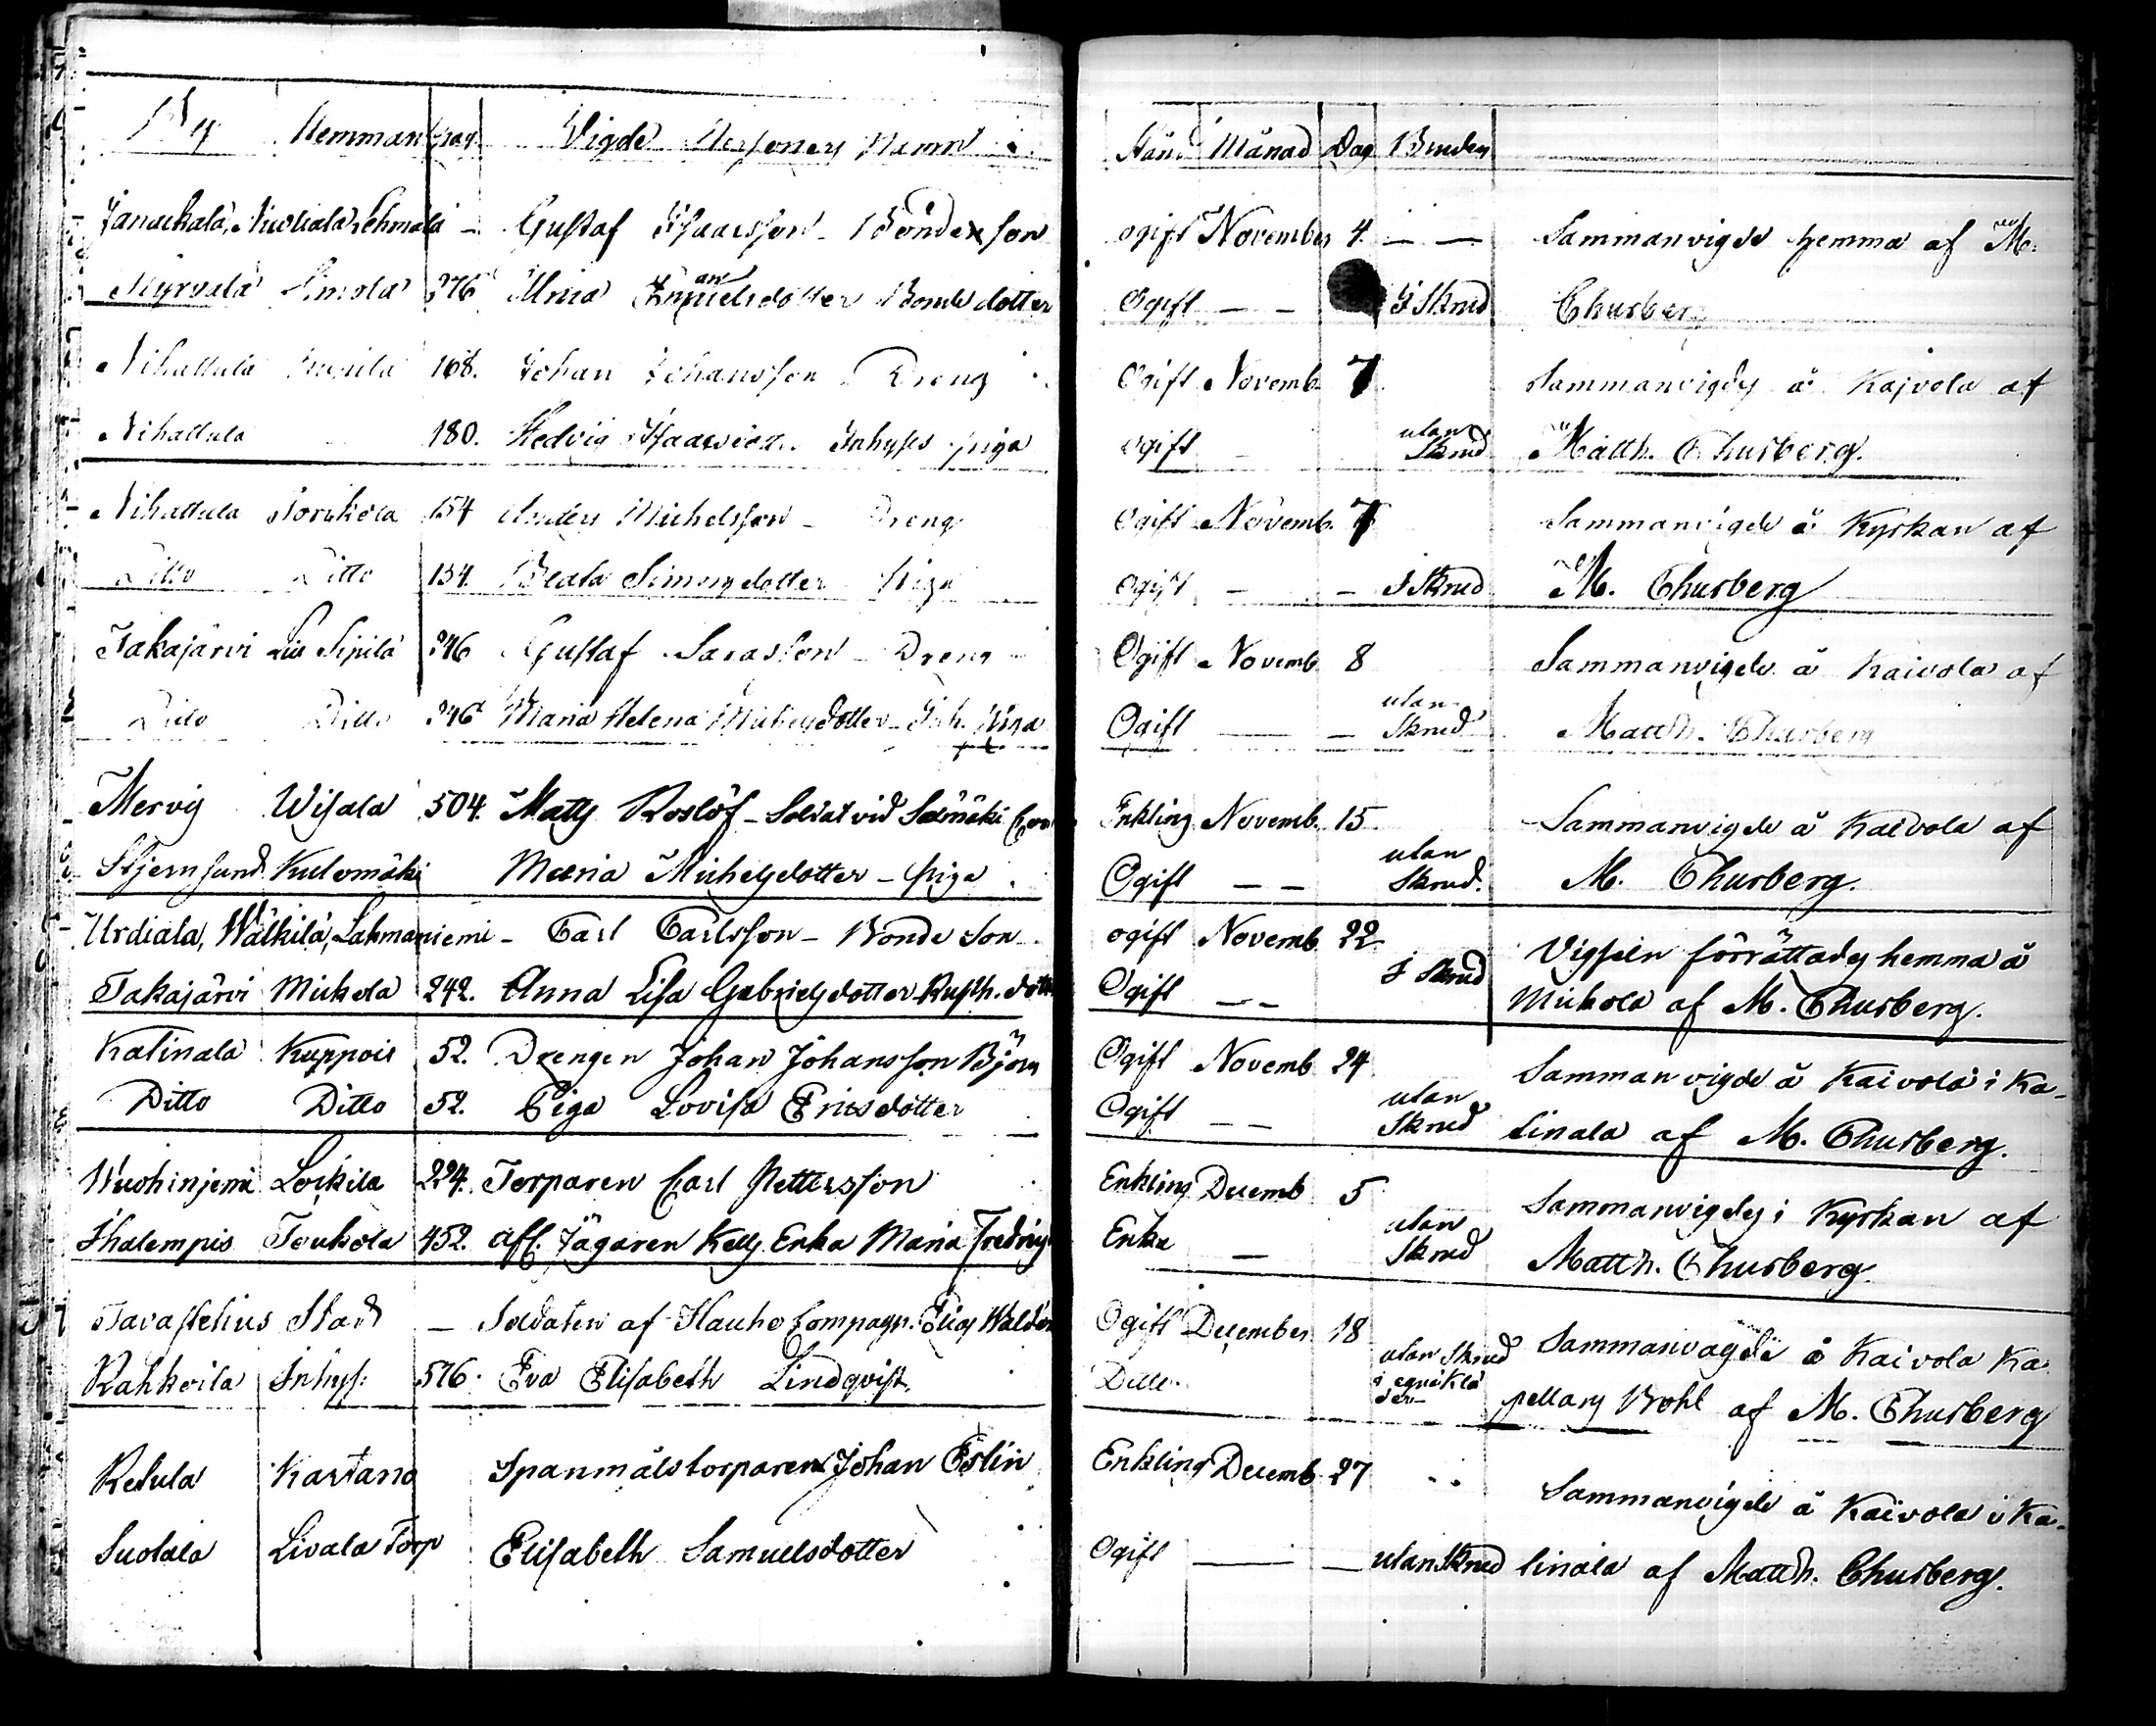 By Hemman pag. Vigde Personers Namn Stånd Månad Dag Bruden
Janackala, Niediala, Lehmälä – Gustaf Isacsson – Bondeson ogift November 4. – – Sammanvigde hemma af M.
Myrvälä Simola 276 Ulrica Emanuelsdotter Bonde dotter Ogift – – I Skrud Thurberg
Nihattula 168. Johan Johansson – Dreng Ogift Novemb. 7 Sammanvigdes å Kajvola af
Nihattula 180. Hedvig Isacsdott. Inhyses piga ogift utan Skrud Matth. Thurberg.
Nihattula 154 Anders Michelsson – Dreng Ogift Novemb. 7 Sammanvigde å Kyrkan af
Ditto Ditto 154. Beata Simonsdotter piga Ogift – – I Skrud M. Thurberg
Takajärvi Lill Sipilä 246 Gustaf Sarasson – Dreng Ogift Novemb. 8 Sammanvigde å Kaivola af
Dito Ditto 246 Maria Helena Michelsdotter – Inh. piga Ogift – – utan Skrud Matth. Thurberg
Mervis Wisala 504. Matts Roslöf – Soldat vid Sääxmäki Com Enkling Novemb. 15 Sammanvigde å Kaivola af
Stjernsund Kulomäki Maria Michelsdotter – piga. Ogift – – utan Skrud. M. Thurberg.
Urdiala, Wälkilä, Lahmaniemi – Carl Carlsson – Bonde Son ogift Novemb. 22 Vigseln förrättades hemma å
Takajärvi Mickola 242. Anna Lisa Gabrielsdotter Rusth. dott Ogift – – I Skrud Mickola af M. Thurberg.
Katinala Kuppois 52. Drengen Johan Johansson Björn Ogift Novemb 24 Sammanvigde å Kaivola i Ka-
Ditto Ditto 52. Piga Lovisa Ericsdotter Ogift – – utan Skrud tinala af M. Thurberg.
Wuohinjemi Lockila 224. Torparen Carl Pettersson Enkling Decemb 5 Sammanvigdes i Kyrkan af
Ihalempis Toukola 452. aff. Jägaren Kells Enka Maria Fredrics Enka – utan Skrud Matth. Thurberg.
Tavastehus Stad – Soldaten af Hauho Compagn. Elias Waldén Ogift December 18 Sammanvigde å Kaivola Ka-
Rahkoila Inhys: 576. Eva Elisabeth Lindqvist. Ditto. utan Skrud i egna Klä der – pellans Bohl af M. Thurberg
Retula Kartano Spanmålstorparen Johan Eslin Enkling Decemb. 27 Sammanvigde å Kaivola i Ka-
Suotala Livala Torp Elisabeth Samuelsdotter Ogift – – utan Skrud tinala af Matth. Thurberg.